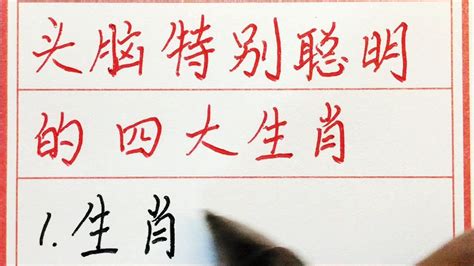 头脑特别聪明
的四大生肖
1.生肖